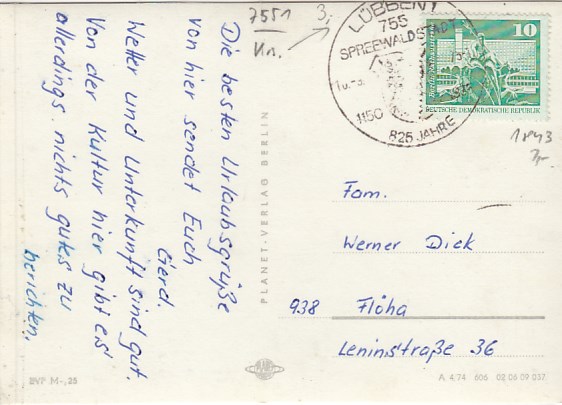 7551
Kn.
3,
Die besten Urlaubsgrüße
von hier sendet Euch
Gerd.
Wetter und Unterkunft sind gut.
Von der Kultur hier gibt es
allerdings nichts gutes zu
berichten.
PLANET-VERLAG BERLIN
LÜBBEN
755
SPREEWALDSTADT
1150
825 JAHRE
10
DEUTSCHE DEMOKRATISCHE REPUBLIK
1843
Fam.
Werner Dick
938 Flöha
Leninstraße 36
EVP M -,25
A 4/74 606 02 06 09 037